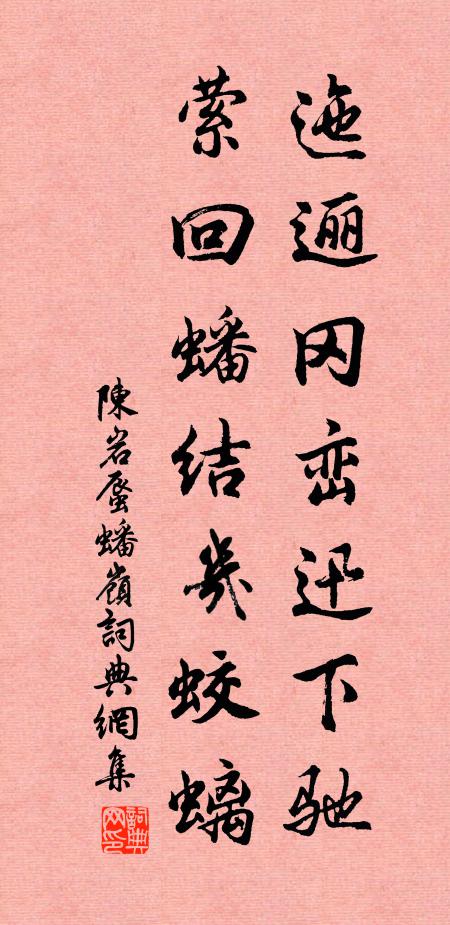 迤逦冈峦迅下驰
萦回蟠结几蛟螭
陳岩蜃蟠嶺詞典網集
詞典网印